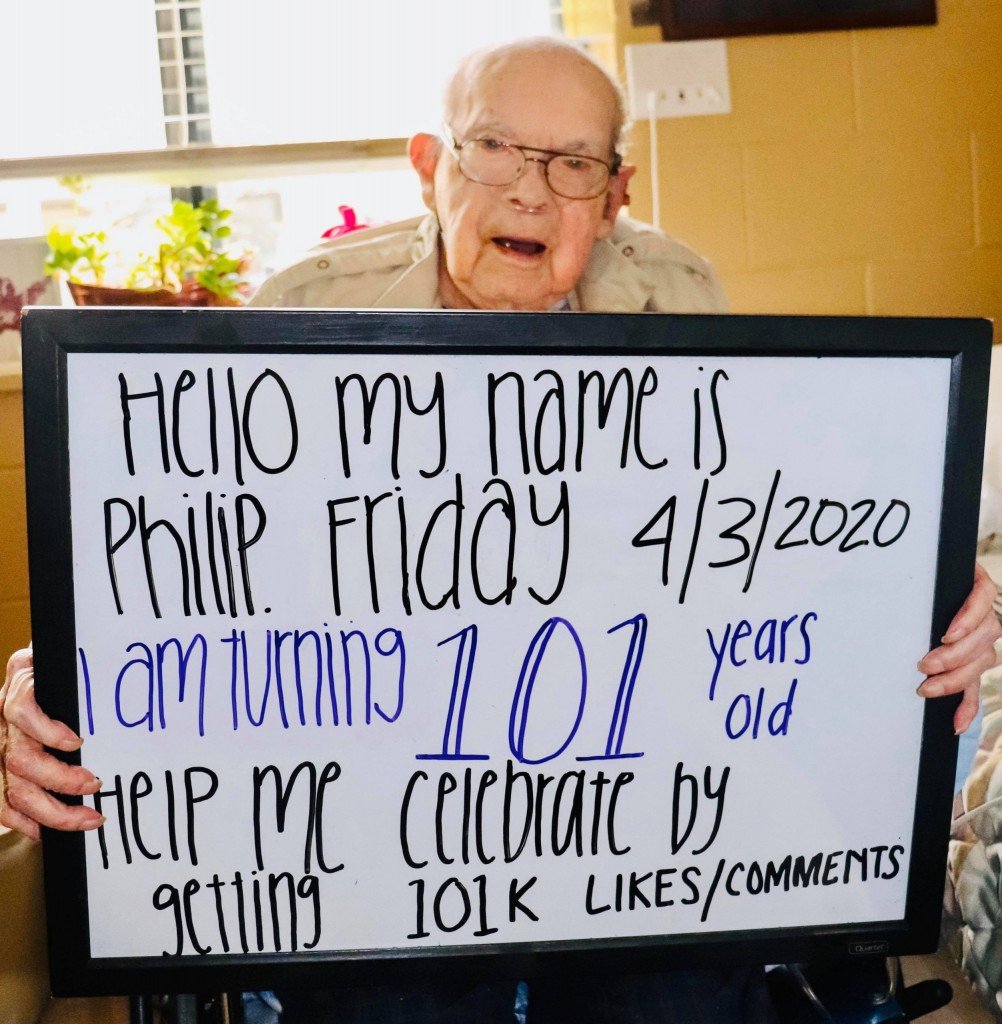 Hello my name is
Philip. Friday 4/3/2020
I am turning 101 years old
Help me celebrate by
getting 101K LIKES/COMMENTS
Quartet